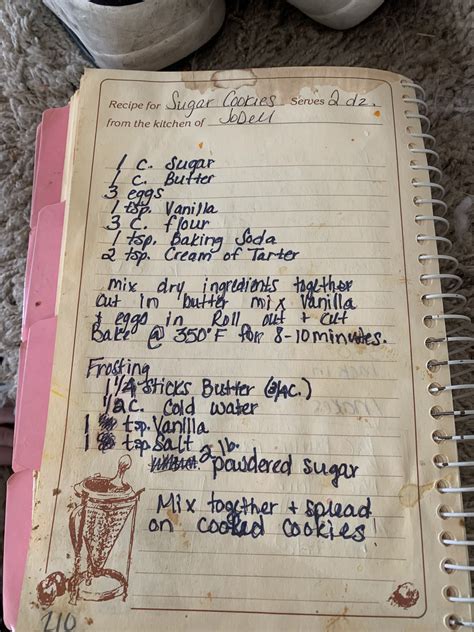 Recipe for Sugar Cookies Serves 2 dz.
from the kitchen of JoDell
1 c. Sugar
1 c. Butter
3 eggs
1 tsp. Vanilla
3 c. flour
1 tsp. Baking Soda
2 tsp. Cream of Tarter
mix dry ingredients together
cut in butter mix Vanilla
+ eggs in Roll out + cut
Bake @ 350°F for 8-10 minutes.
Frosting
1 1/4 sticks Butter (3/4c.)
1/2 c. cold water
1 tsp. Vanilla
1 tsp. Salt
2 lb. powdered sugar
Mix together + spread
on cooled cookies!
210